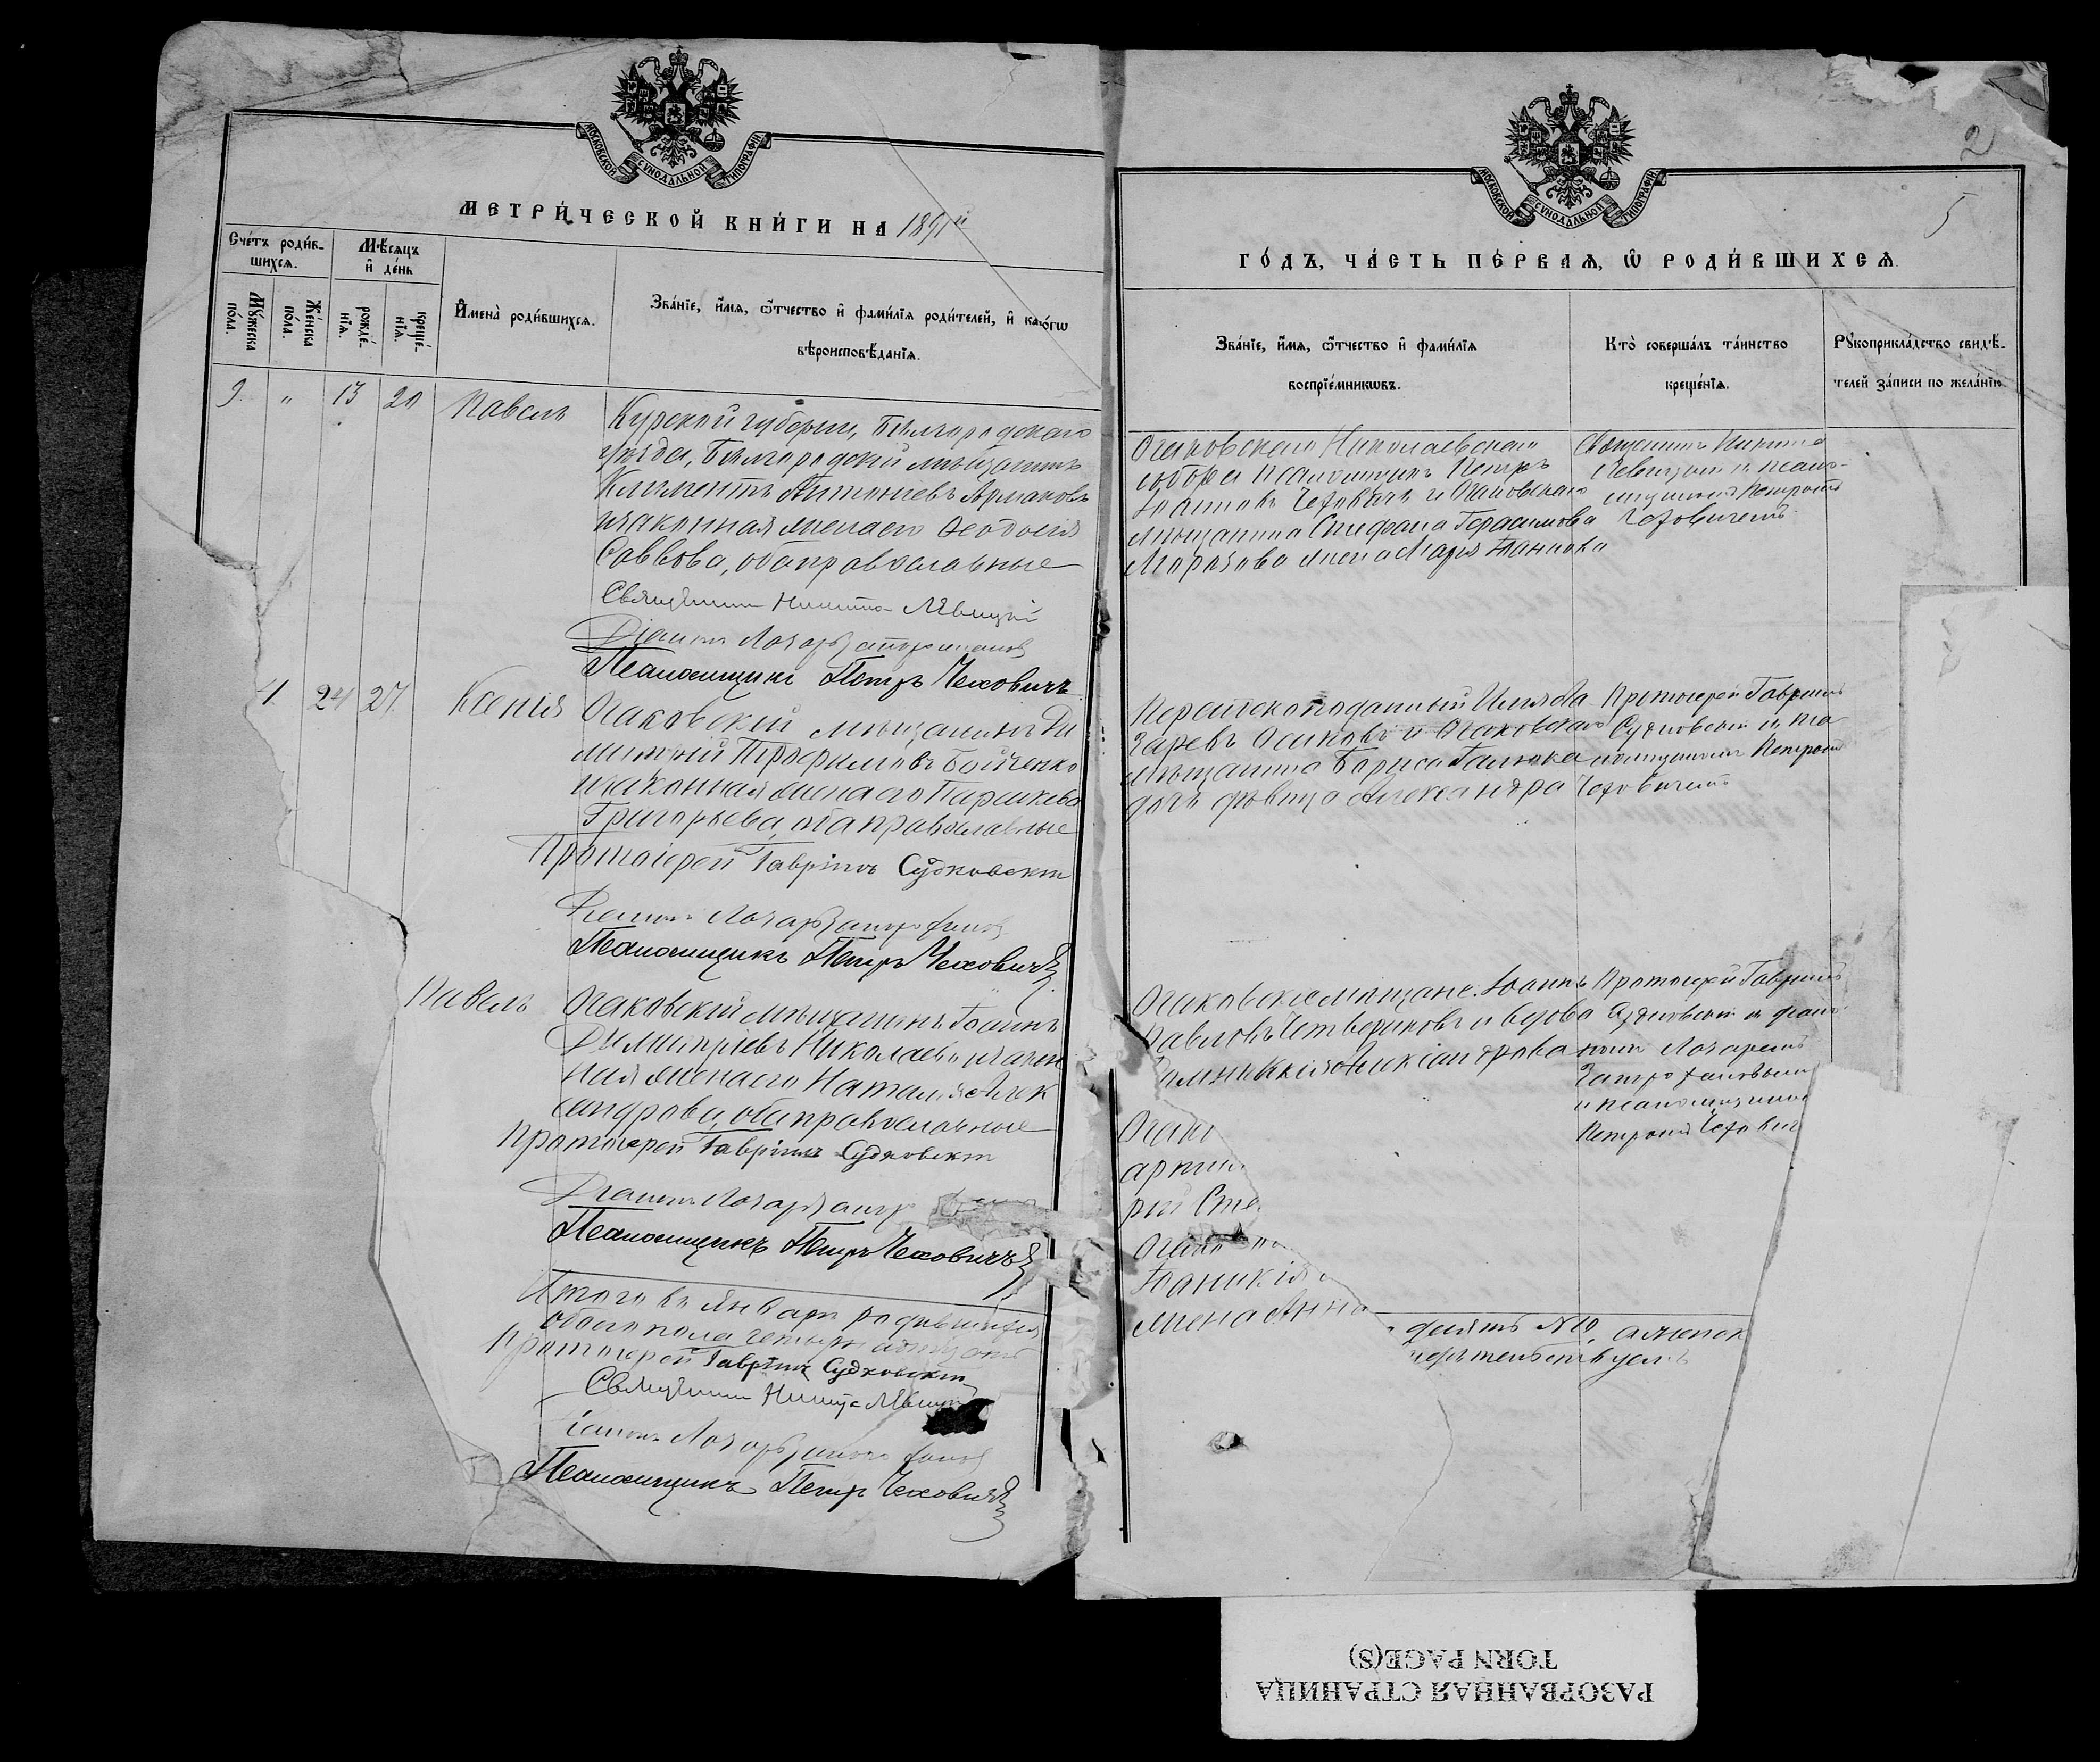 МОСКОВСКОЙ СѴНОДАЛЬНОЙ ТИПОГРАФІИ
МЕТРИ́ЧЕСКОЙ КНИ́ГИ НА 1891й
Сче́тъ роди́в-
шихсѧ.
Мѣ́сѧцъ
и҆ де́нь
Мꙋ́жеска
по́ла.
Же́нска
по́ла.
рожде́-
нїѧ.
креще́-
нїѧ.
И҆мена̀ роди́вшихсѧ.
Зва́нїе, и҆́мѧ, ѻ҆́тчество и҆ фами́лїѧ роди́телей, и҆ како́гѡ
вѣроисповѣ́данїѧ.
9. " 13 20 Павелъ
Курской губерніи, Бѣлгородскаго
уѣзда, Бѣлгородскій мѣщанинъ
Климентъ Антоніевъ Армаковъ
и законная жена его Ѳеодосія
Саввова, оба православные
Священникъ Никита Лѣвицкій
Діаконъ Лазарь
Псаломщикъ Петръ Чеховичъ
4 24 27 Ксенія
Очаковскій мѣщанинъ Ди
митрій Трофимовъ Бойченко
и законная жена его Параскева
Григорьева, оба православные
Протоіерей Гавріилъ Судковскій
Діаконъ Лазарь
Псаломщикъ Петръ Чеховичъ
Павелъ
Очаковскій мѣщанинъ Іоаннъ
Димитріевъ Николаевъ и закон
ная жена его Наталія Алек
сандрова, оба православные
Протоіерей Гавріилъ Судковскій
Діаконъ Лазарь
Псаломщикъ Петръ Чеховичъ
Итого въ Январѣ родившихся
обоего пола четырнадцать
Протоіерей Гавріилъ Судковскій
Священникъ Никита Лѣвицкій
Діаконъ Лазарь
Псаломщикъ Петръ Чеховичъ
МОСКОВСКОЙ СѴНОДАЛЬНОЙ ТИПОГРАФІИ
2
5
ГО́ДЪ, ЧА́СТЬ ПЕ́РВАѦ, Ѡ҆ РОДИ́ВШИХСѦ.
Зва́нїе, и҆́мѧ, ѻ҆́тчество и҆ фами́лїѧ
воспрїе́мникѡвъ.
Кто̀ соверша́лъ та́инство
креще́нїѧ.
Рꙋкоприкла́дство свидѣ́-
телей за́писи по жела́нїю.
Очаковскаго Николаевскаго
собора псаломщикъ Петръ
Іоанновъ Чеховичъ и Очаковскаго
мѣщанина Стефана Герасимова
жена Марія Іоаннова
Священникъ Никита
Левицкій и псало-
мщикомъ Петромъ
Чеховичемъ.
Персидскоподанный Илья Ла
заревъ Осиповъ и Очаковскаго
мѣщанина Бориса
дочь дѣвица Александра
Протоіерей Гавріилъ
Судковскій и пса
ломщикомъ Петромъ
Чеховичемъ
Очаковскіе мѣщане: Іоаннъ
Павловъ Четвериковъ и вдова
Александрова
Протоіерей Гавріилъ
Судковскій и діако
номъ Лазаремъ
и псаломщикомъ
Петромъ Чехович
Очако
артил
рій Сте
Очако
Іоаникія
жена Анна
десять №10, а женск
РАЗОРВАННАЯ СТРАНИЦА
TORN PAGE(S)